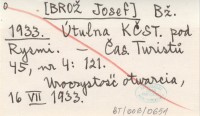 [BROŻ Josef] Bż.
1933. Útulna KČST. pod
Rysmi. – Čas. Turistů
45, nr 4: 121.
Uroczystość otwarcia,
16 VII 1933.